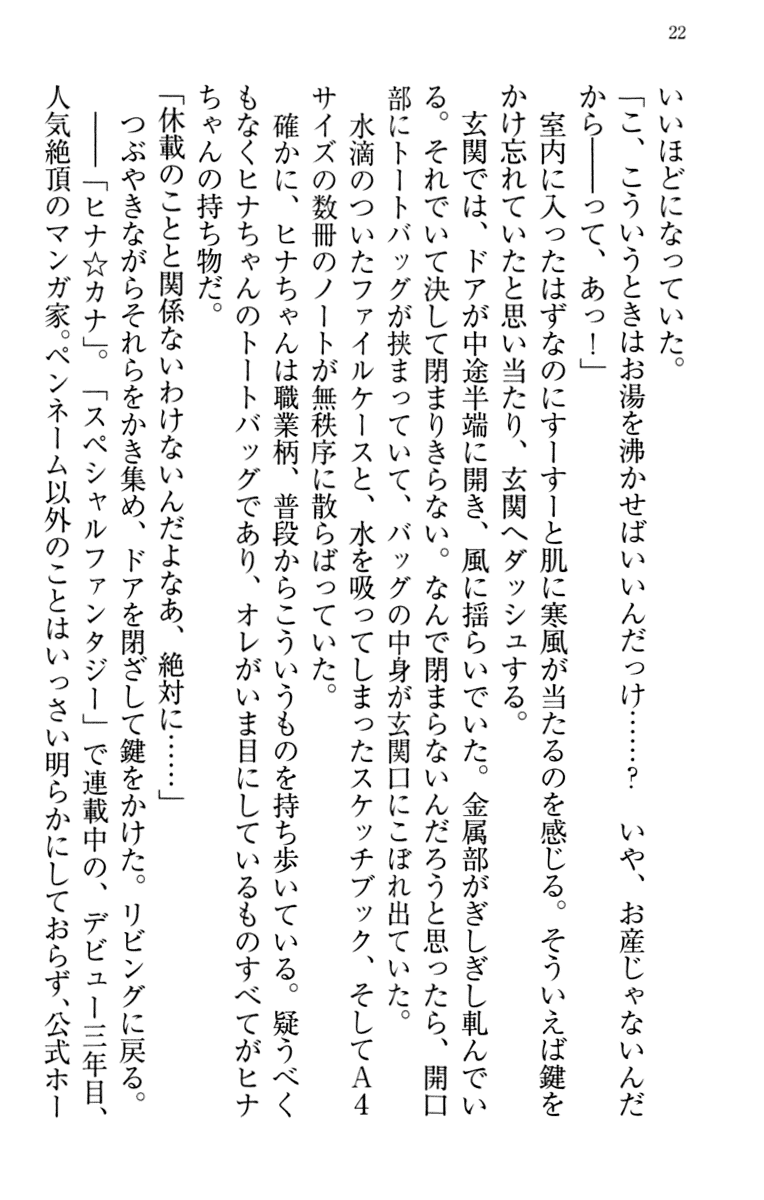 22
いいほどになっていた。
「こ、こういうときはお湯を沸かせばいいんだっけ……?　いや、お産じゃないんだ
から――って、あっ！」
　室内に入ったはずなのにすーすーと肌に寒風が当たるのを感じる。そういえば鍵を
かけ忘れていたと思い当たり、玄関へダッシュする。
　玄関では、ドアが中途半端に開き、風に揺らいでいた。金属部がぎしぎし軋んでい
る。それでいて決して閉まりきらない。なんで閉まらないんだろうと思ったら、開口
部にトートバッグが挟まっていて、バッグの中身が玄関口にこぼれ出ていた。
　水滴のついたファイルケースと、水を吸ってしまったスケッチブック、そしてA4
サイズの数冊のノートが無秩序に散らばっていた。
　確かに、ヒナちゃんは職業柄、普段からこういうものを持ち歩いている。疑うべく
もなくヒナちゃんのトートバッグであり、オレがいま目にしているものすべてがヒナ
ちゃんの持ち物だ。
「休載のことと関係ないわけないんだよなあ、絶対に……」
　つぶやきながらそれらをかき集め、ドアを閉ざして鍵をかけた。リビングに戻る。
　――「ヒナ☆カナ」。「スペシャルファンタジー」で連載中の、デビュー三年目、
人気絶頂のマンガ家。ペンネーム以外のことはいっさい明らかにしておらず、公式ホー